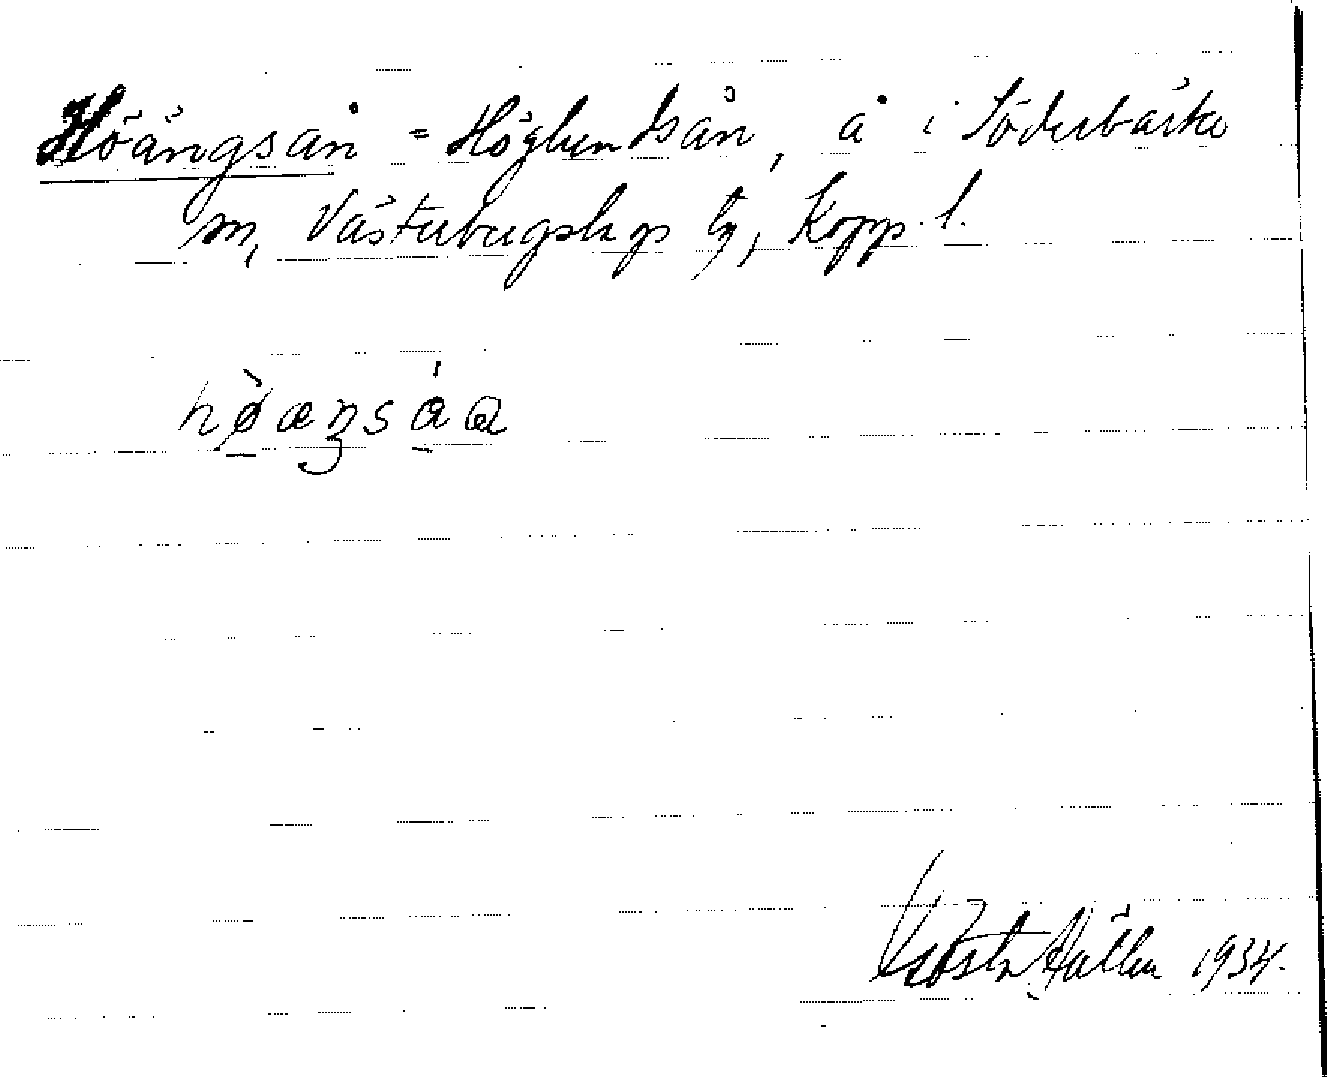 Höängsån = Höglundsån, å i Söderbärke
sn, Västerbergslags tg, Kopp. l.
Gösta Hällen 1934.